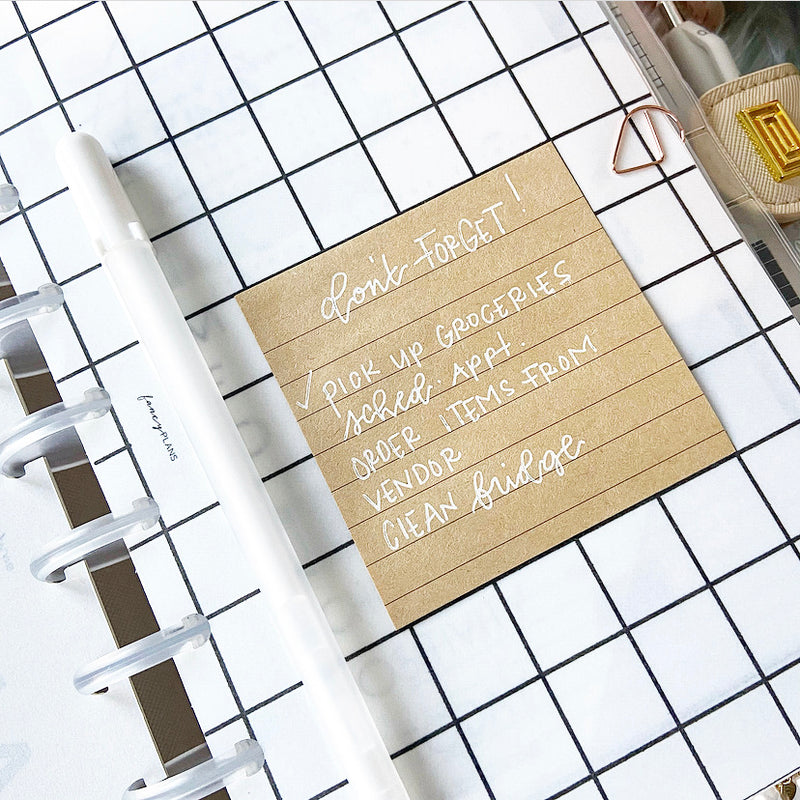 don't FORGET!
✓ PICK UP GROCERIES
sched. APPT.
ORDER ITEMS FROM
VENDOR
CLEAN fridge.
fancyPLANS